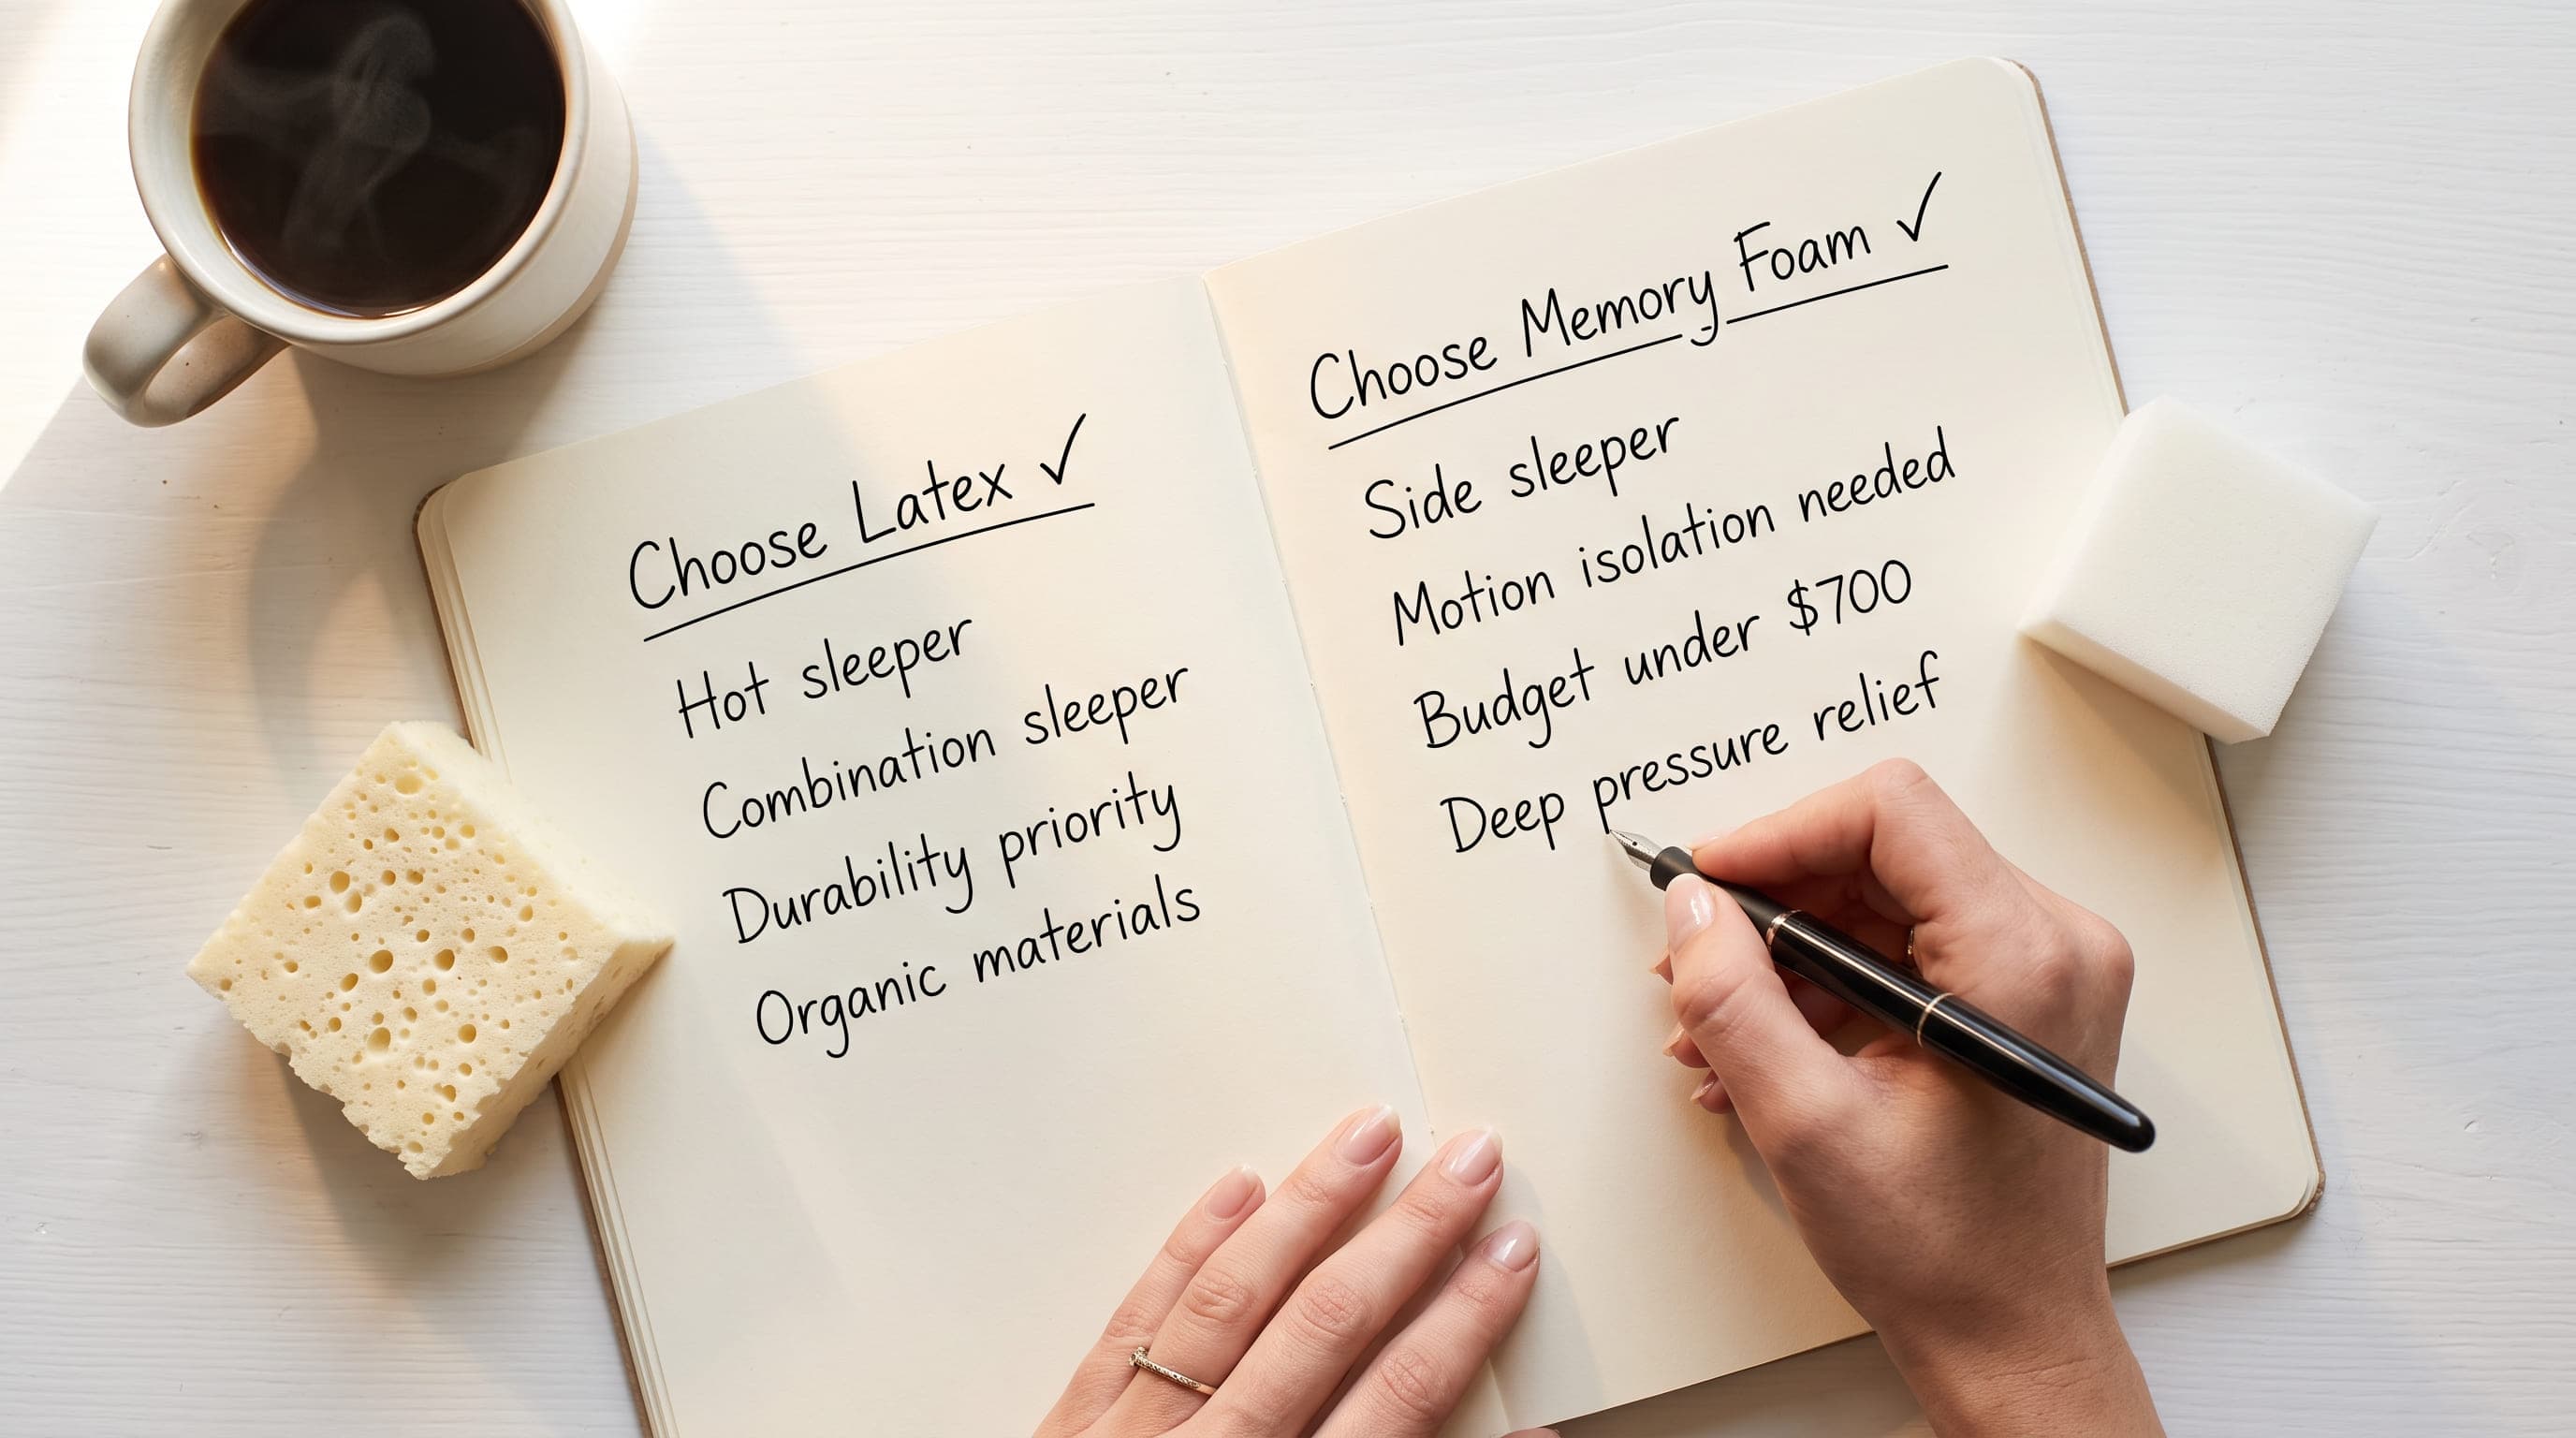 Choose Latex ✓
Hot sleeper
Combination sleeper
Durability priority
Organic materials
Choose Memory Foam ✓
Side sleeper
Motion isolation needed
Budget under $700
Deep pressure relief